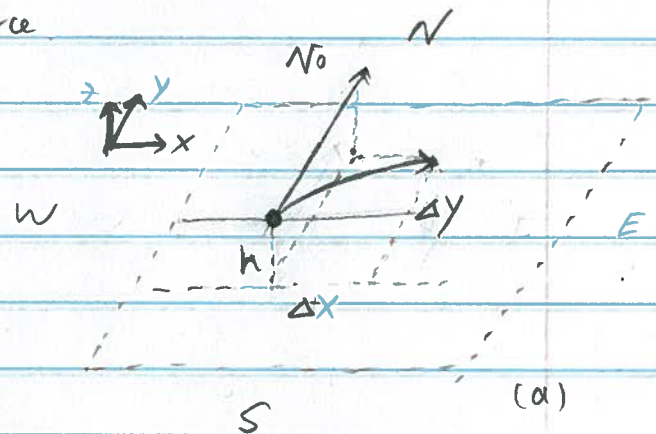 rce
N
No
z y
x
W
Δy
E
h
Δx
(a)
S